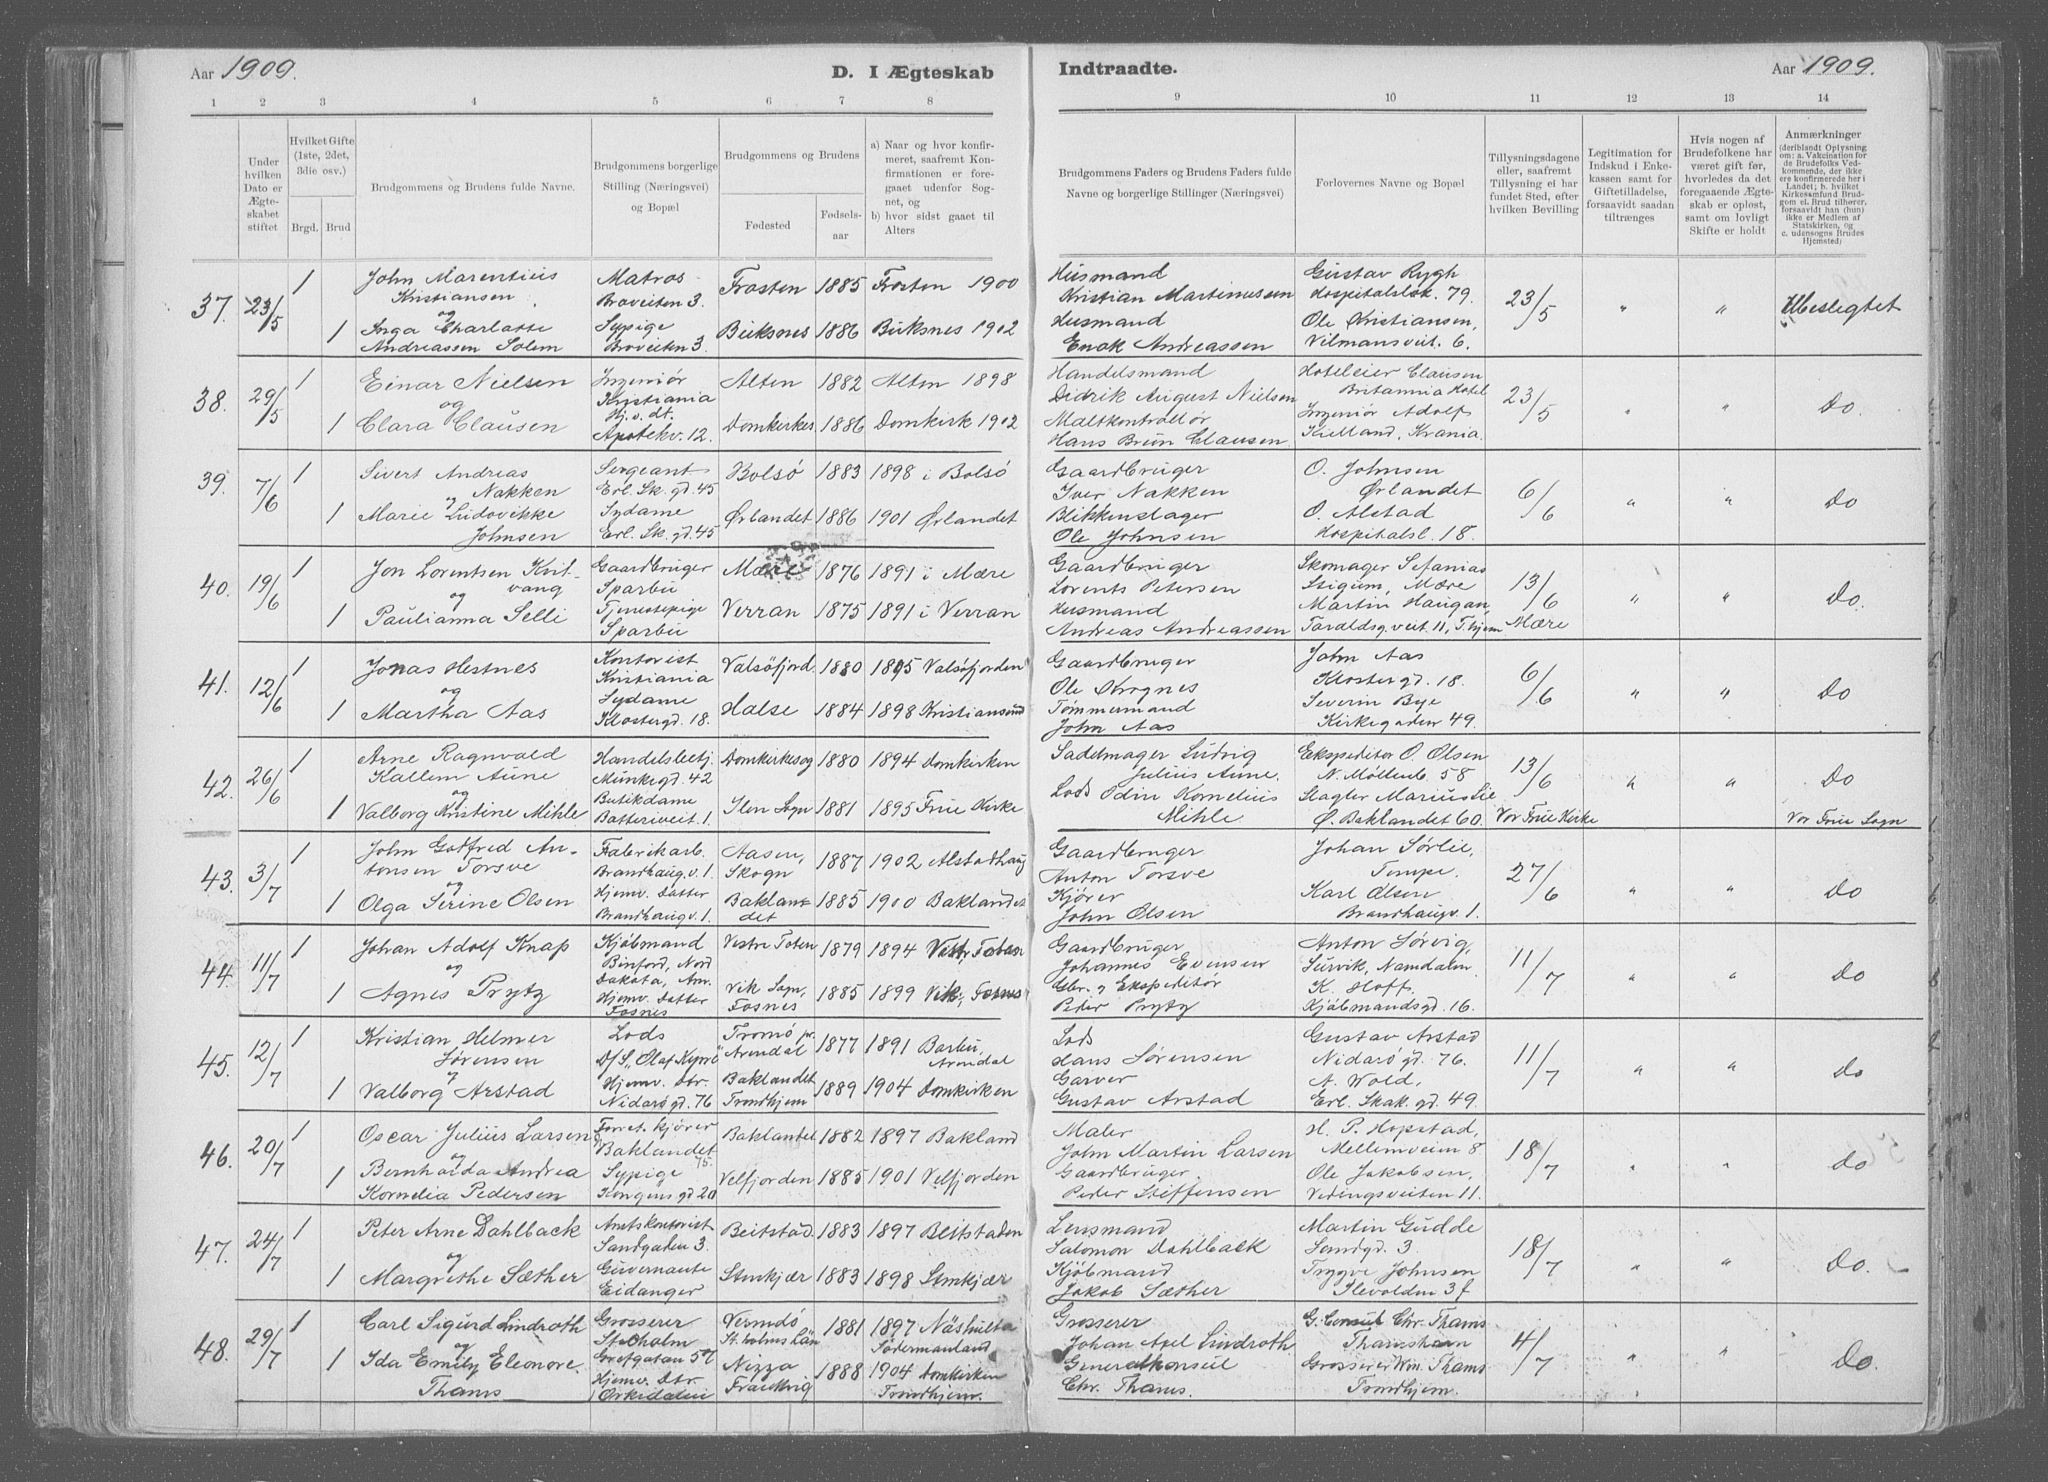 Aar 1909.
D. I Ægteskab
Indtraadte.
Aar 1909.
1 2 3 4 5 6 7 8 9 10 11 12 13 14
Under hvilken Dato er Ægteskabet stiftet
Hvilket Gifte (1ste, 2det, 3die osv.)
Brgd. Brud
Brudgommens og Brudens fulde Navne.
Brudgommens borgerlige Stilling (Næringsvei) og Bopæl
Brudgommens og Brudens
Fødested
Fødselsaar
a) Naar og hvor konfirmeret, saafremt Konfirmationen er foregaaet udenfor Sognet, og
b) hvor sidst gaaet til Alters
Brudgommens Faders og Brudens Faders fulde Navne og borgerlige Stillinger (Næringsvei)
Forlovernes Navne og Bopæl
Tillysningsdagene eller, saafremt Tillysning ei har fundet Sted, efter hvilken Bevilling
Legitimation for Indskud i Enkekassen samt for Giftetilladelse, forsaavidt saadan tiltrænges
Hvis nogen af Brudefolkene har været gift før, hvorledes da det foregaaende Ægteskab er opløst, samt om lovligt Skifte er holdt
Anmærkninger
(deriblandt Oplysning om: a. Vakcination for de Brudefolks Vedkommende, der ikke ere konfirmerede her i Landet; b. hvilket Kirkesamfund Brudgom el. Brud tilhører, forsaavidt han (hun) ikke er Medlem af Statskirken, og c. udensogns Brudes Hjemsted)
37. 23/5 1 John Marentius Kristiansen Matros Braveiten 3. Frosten 1885 Frosten 1900 Husmand Kristian Martinussen Gustav Rygh Hospitalsløk. 79. 23/5 " " Ubeslegtet
og
1 Inga Charlotte Andreassen Solem Sypige Braveiten 3. Buksnes 1886 Buksnes 1902 Husmand Enok Andreassen Ole Kristiansen, Vilmansveit. 6.
38. 29/5 1 Einar Nielsen Ingeniør Kristiania Alten 1882 Alten 1898 Handelsmand Didrik August Nielsen Hoteleier Clausen Britannia Hotel 23/5 " " Do.
og
1 Clara Clausen Hj. v. dt. Apothekv. 12. Domkirkes 1886 Domkirk 1902 Maltkontrollør Hans Brun Clausen Ingeniør Adolf Kielland, Krania.
39. 7/6 1 Sivert Andreas Nakken Sergeant Erl. Sk. gd. 45 Bolsø 1883 1898 i Bolsø Gaardbruger Iver Nakken O. Johnsen Ørlandet 6/6 " " Do
og
1 Marie Ludovikke Johnsen Sydame Erl. Sk. gd. 45 Ørlandet 1886 1901 Ørlandet Blikkenslager Ole Johnsen O. Alstad Hospitalsl. 18.
40. 19/6 1 Jon Lorentsen Kvitvang Gaardbruger Sparbu Mære 1876 1891 i Mære Gaardbruger Lorents Petersen Skomager Sefanias Stigum, Mære 13/6 " " Do.
og
1 Paulianna Selli Tjenestepige Sparbu Verran 1875 1891 i Verran Husmand Andreas Andreassen Martin Haugan, Taraldsg.veit 11, T.hjem Mære
41. 12/6 1 Jonas Hestnes Kontorist Kristiania Valsøfjord 1880 1895 Valsøfjorden Gaardbruger Ole Krognes John Aas Klostergd. 18. 6/6 " " Do
og
1 Martha Aas Sydame Klostergd. 18. Halse 1884 1898 Kristiansund Tømmermand John Aas Severin Bye Kirkegaden 49.
42. 26/6 1 Arne Ragnvald Kallem Aune Handelsbetj. Munkegd. 42 Domkirkesog 1880 1894 Domkirken Sadelmager Ludvig Julius Aune. Ekspeditør O. Olsen N. Møllenb. 58 13/6 " " Do
og
1 Valborg Kristine Mihle Butikdame Batteriveit. 1. Ilen Sogn 1881 1895 Frue Kirke Lods Odin Kornelius Mihle Slagter Marius Lie Ø. Baklandet 60. Vor Frue Kirke Vor Frue Sogn
43. 3/7 1 John Gotfred Antonsen Torsve Fabrikarb. Brandhaug.v. 1. Aasen, Skogn 1887 1902 Alstadhaug Gaardbruger Anton Torsve Johan Sørlie, Tempe. 27/6 " " Do
og
1 Olga Serine Olsen Hjemv. Datter Brandhaugv. 1. Baklandet 1885 1900 Baklandet Kjører John Olsen Karl Olsen Brandhaugv. 1.
44. 11/7 1 Johan Adolf Knap Kjøbmand Binford, Nord Dakota, Am. Vestre Toten 1879 1894 Vestr. Toten Gaardbruger Johannes Evensen Anton Sørvig, Survik, Namdalen 11/7 " " Do
og
1 Agnes Prytz Hjemv. Datter Fosnes Vik Sogn, Fosnes 1885 1899 Vik, Fosnes Gbr. & Ekspeditør Peter Prytz K. Hoff, Kjøbmandsgd. 16.
45. 12/7 1 Kristian Helmer Sørensen Lods D/S. "Olaf Kyrre" Tromø pr. Arendal 1877 1891 Barbu, Arendal Lods Hans Sørensen Gustav Arstad Nidarøgd. 76. 11/7 " " Do
og
1 Valborg Arstad Hjemv. Dtr. Nidarøgd. 76 Baklandet Trondhjem 1889 1904 Domkirken Garver Gustav Arstad A. Wold, Erl. Skak. gd. 49.
46. 20/7 1 Oscar Julius Larsen Forret. kjører Baklandet 75. Baklandet 1882 1897 Bakland Maler John Martin Larsen H. P. Hopstad, Mellemveien 8 18/7 " " Do
og
1 Bernharda Andrea Kornelia Pedersen Sypige Kongensgd 20 Velfjorden 1885 1901 Velfjorden Gaardbruger Peder Steffensen Ole Jakobsen, Vedingsveiten 11.
47. 24/7 1 Peter Arne Dahlback Amtskontorist Sandgaden 3. Beitstad 1883 1897 Beitstaden Lensmand Salomon Dahlback Martin Gudde Sandgd. 3 18/7 " " Do.
og
1 Margrethe Sæther Guvernante Eidanger Stenkjær 1883 1898 Stenkjær Kjøbmand Jakob Sæther Trygve Johnsen Ilevolden 3 f
48. 29/7 1 Carl Sigurd Lindroth Grosserer Stockholm Grefgatan 57 Vermdö St. holms Län 1881 1897 Näshulta Södermanland Grosserer Johan Axel Lindroth G. Consul Chr. Thams Thamshavn 4/7 " " Do.
og
1 Ida Emily Eleonore Thams Hjemv. Dtr. Orkedalen Nizza Frankrig 1888 1904 Domkirken Trondhjem. Generalkonsul Chr. Thams. Grosserer Wm. Thams Trondhjem.